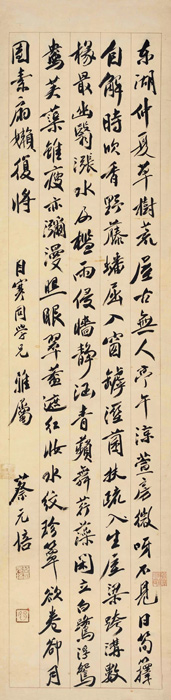 東湖仲夏草樹荒屋古無人亭午涼萱房微呀不見日筍籜
自解時吹香野藤蟠屈入窗罅溼菌扶疏入生屋梁跨溝數
椽最幽翳漲水及檻雨侵牆靜涵青蘋舞荇藻閑立白鷺浮鴛
鴦芙蕖雖瘦亦瀰漫照眼翠蓋遮紅妝水紋珍簟欲卷卻月
團素扇嬾復將
目寒同學兄 雅屬
蔡元培